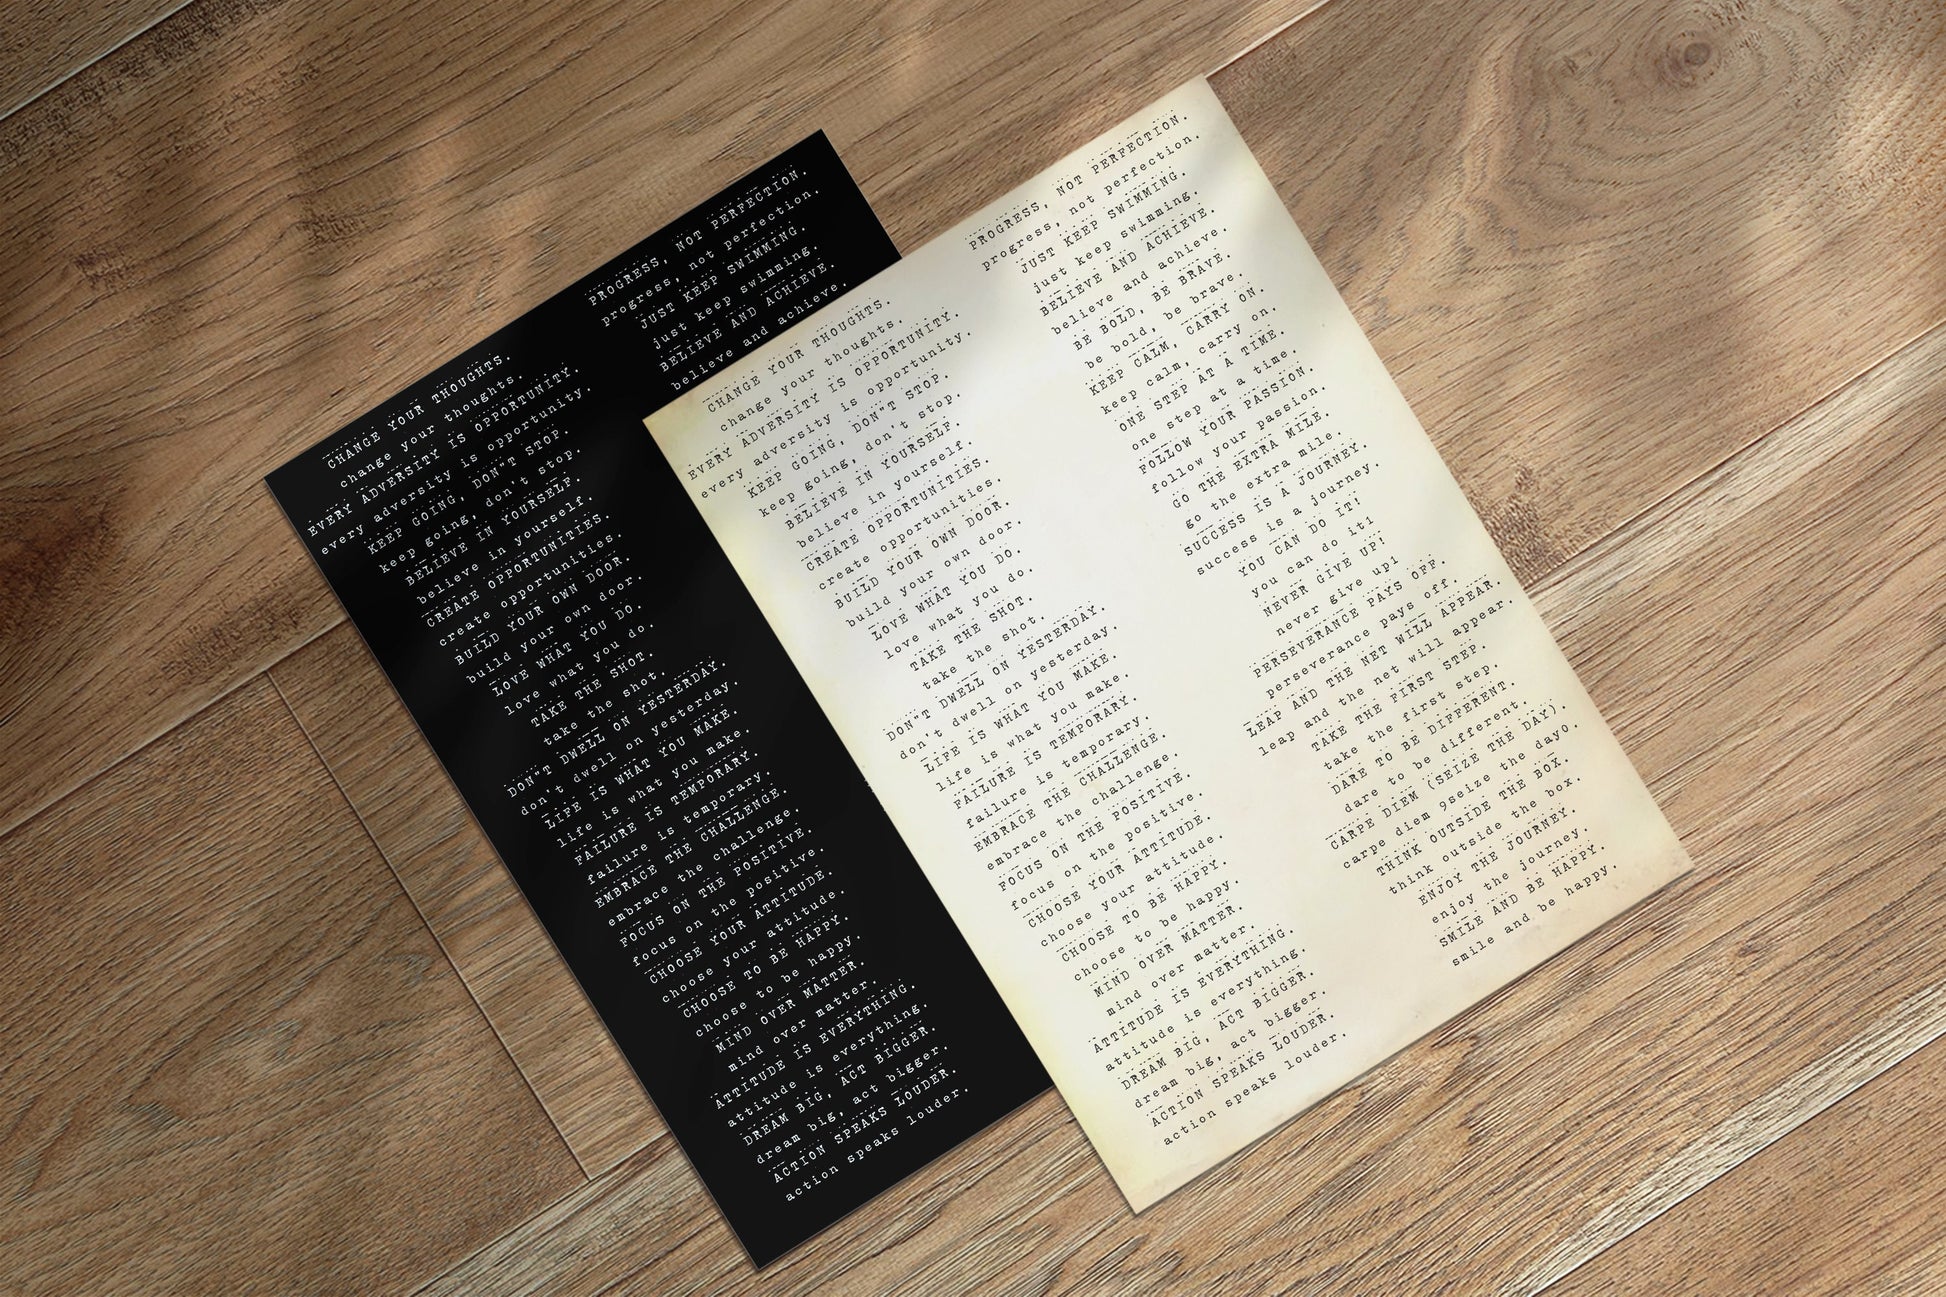 CHANGE YOUR THOUGHTS.
change your thoughts.
EVERY ADVERSITY IS OPPORTUNITY.
every adversity is opportunity.
KEEP GOING, DON"T STOP.
keep going, don't stop.
BELIEVE IN YOURSELF.
believe in yourself.
CREATE OPPORTUNITIES.
create opportunities.
BUILD YOUR OWN DOOR.
build your own door.
LOVE WHAT YOU DO.
love what you do.
TAKE THE SHOT.
take the shot.
DON"T DWELL ON YESTERDAY.
don't dwell on yesterday.
LIFE IS WHAT YOU MAKE.
life is what you make.
FAILURE IS TEMPORARY.
failure is temporary.
EMBRACE THE CHALLENGE.
embrace the challenge.
FOCUS ON THE POSITIVE.
focus on the positive.
CHOOSE YOUR ATTITUDE.
choose your attitude.
CHOOSE TO BE HAPPY.
choose to be happy.
MIND OVER MATTER.
mind over matter.
ATTITUDE IS EVERYTHING.
attitude is everything.
DREAM BIG, ACT BIGGER.
dream big, act bigger.
ACTION SPEAKS LOUDER.
action speaks louder.
PROGRESS, NOT PERFECTION.
progress, not perfection.
JUST KEEP SWIMMING.
just keep swimming.
BELIEVE AND ACHIEVE.
believe and achieve.
CHANGE YOUR THOUGHTS.
change your thoughts.
EVERY ADVERSITY IS OPPORTUNITY.
every adversity is opportunity.
KEEP GOING, DON"T STOP.
keep going, don't stop.
BELIEVE IN YOURSELF.
believe in yourself.
CREATE OPPORTUNITIES.
create opportunities.
BUILD YOUR OWN DOOR.
build your own door.
LOVE WHAT YOU DO.
love what you do.
TAKE THE SHOT.
take the shot.
DON"T DWELL ON YESTERDAY.
don't dwell on yesterday.
LIFE IS WHAT YOU MAKE.
life is what you make.
FAILURE IS TEMPORARY.
failure is temporary.
EMBRACE THE CHALLENGE.
embrace the challenge.
FOCUS ON THE POSITIVE.
focus on the positive.
CHOOSE YOUR ATTITUDE.
choose your attitude.
CHOOSE TO BE HAPPY.
choose to be happy.
MIND OVER MATTER.
mind over matter.
ATTITUDE IS EVERYTHING.
attitude is everything.
DREAM BIG, ACT BIGGER.
dream big, act bigger.
ACTION SPEAKS LOUDER.
action speaks louder.
PROGRESS, NOT PERFECTION.
progress, not perfection.
JUST KEEP SWIMMING.
just keep swimming.
BELIEVE AND ACHIEVE.
believe and achieve.
BE BOLD, BE BRAVE.
be bold, be brave.
KEEP CALM, CARRY ON.
keep calm, carry on.
ONE STEP AT A TIME.
one step at a time.
FOLLOW YOUR PASSION.
follow your passion.
GO THE EXTRA MILE.
go the extra mile.
SUCCESS IS A JOURNEY.
success is a journey.
YOU CAN DO IT!
you can do it1
NEVER GIVE UP!
never give up1
PERSEVERANCE PAYS OFF.
perseverance pays off.
LEAP AND THE NET WILL APPEAR.
leap and the net will appear.
TAKE THE FIRST STEP.
take the first step.
DARE TO BE DIFFERENT.
dare to be different.
CARPE DIEM (SEIZE THE DAY).
carpe diem 9seize the day0.
THINK OUTSIDE THE BOX.
think outside the box.
ENJOY THE JOURNEY.
enjoy the journey.
SMILE AND BE HAPPY.
smile and be happy.